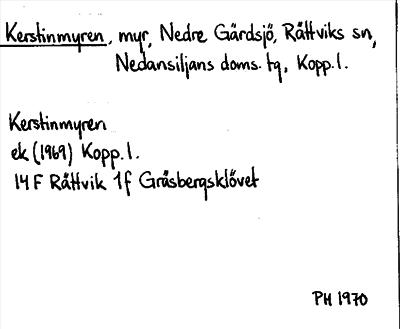 Kerstinmyren, myr, Nedre Gärdsjö, Rättviks sn,
Nedansiljans doms. tg, Kopp. l.
Kerstinmyren
ek (1969) Kopp. l.
14 F Rättvik 1f Gräsbergsklövet
PH 1970